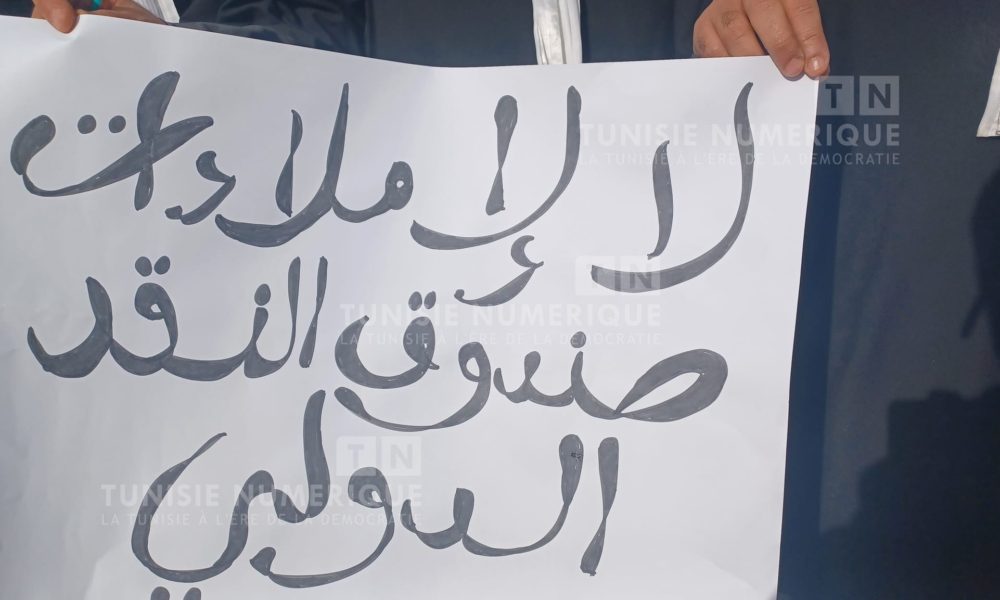 لا لإملاءات
صندوق النقد
الدولي
TN
TUNISIE NUMERIQUE
LA TUNISIE À L'ÈRE DE LA DEMOCRATIE
TN
TUNISIE NUMERIQUE
LA TUNISIE À L'ÈRE DE LA DEMOCRATIE
TN
TUNISIE NUMERIQUE
LA TUNISIE À L'ÈRE DE LA DEMOCRATIE